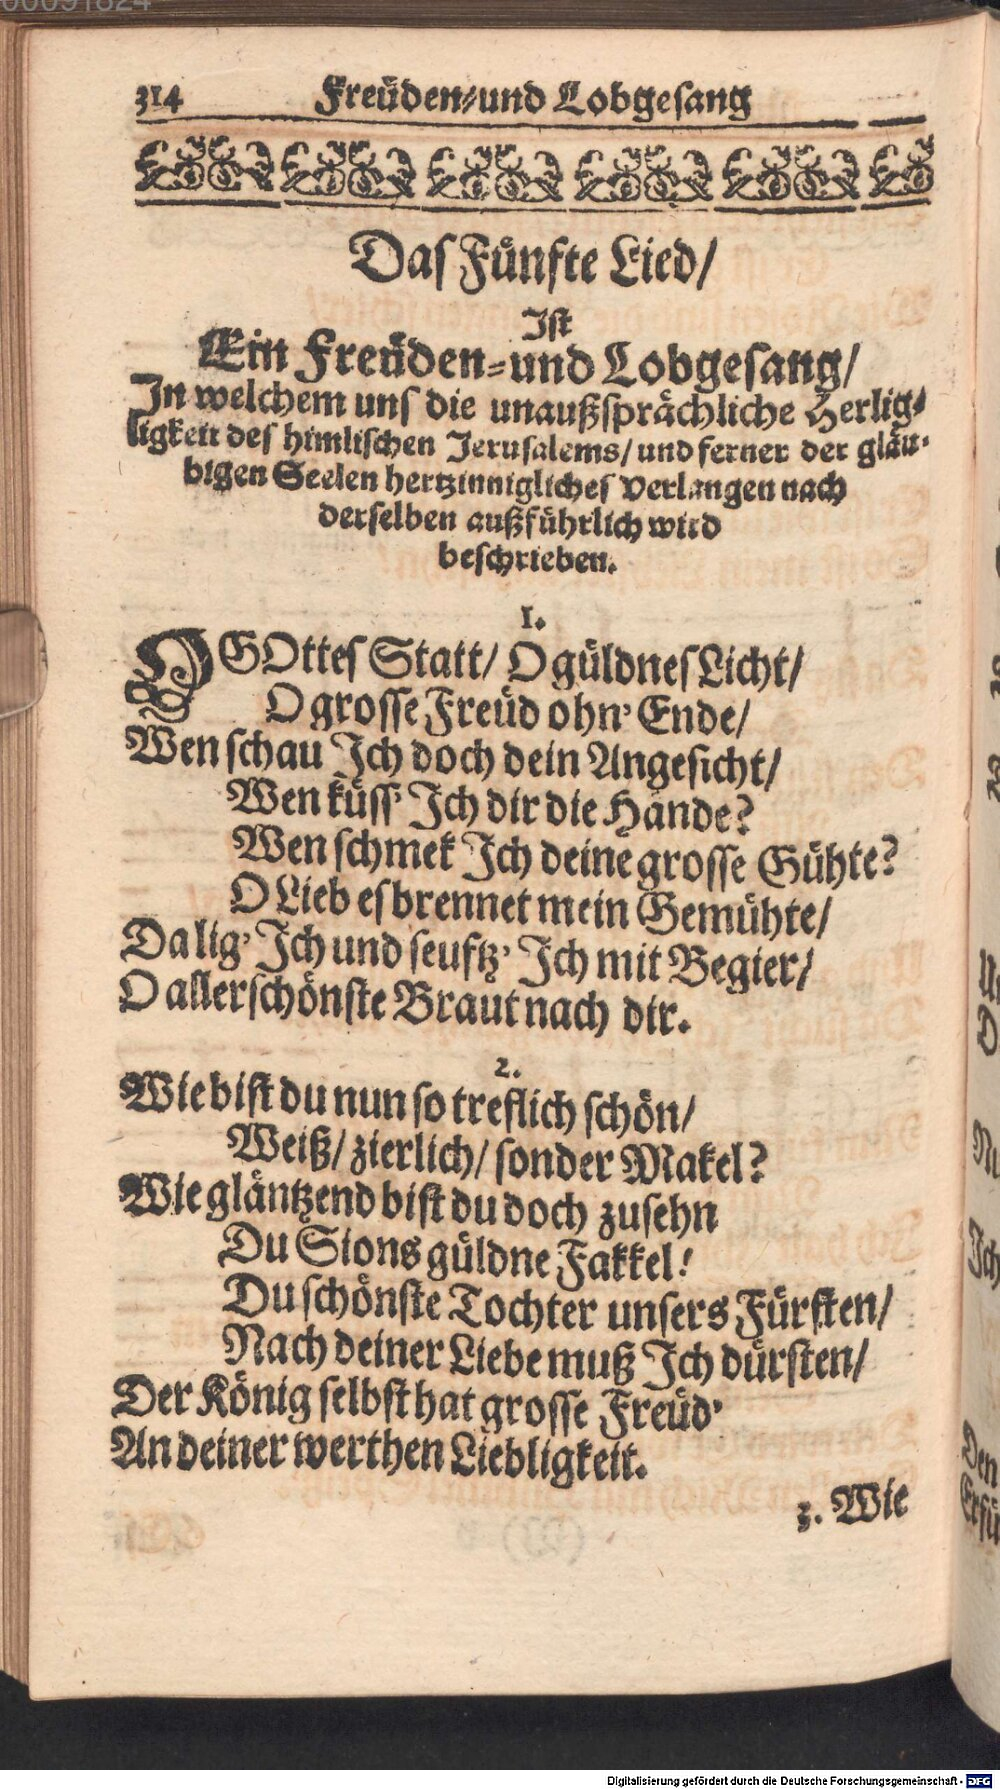 314 Freüden-und Lobgesang
Das Fünfte Lied/
Ist
Ein Freüden-und Lobgesang/
In welchem uns die unaußsprächliche Herlig-
ligkeit des himlischen Jerusalems/ und ferner der gläu-
bigen Seelen hertzinnigliches verlangen nach
derselben außführlich wird
beschrieben.
1.
O GOttes Statt/ O güldnes Licht/
O grosse Freüd ohn' Ende/
Wen schau Ich doch dein Angesicht/
Wen küss' Ich dir die Hände?
Wen schmek Ich deine grosse Gühte?
O Lieb es brennet mein Gemühte/
Da lig' Ich und seuftz' Ich mit Begier/
O allerschönste Braut nach dir.
2.
Wie bist du nun so treflich schön/
Weiß/ zierlich/ sonder Makel?
Wie gläntzend bist du doch zusehn
Du Sions güldne Fakkel!
Du schönste Tochter unsers Fürsten/
Nach deiner Liebe muß Ich dürsten/
Der König selbst hat grosse Freüd'
An deiner werthen Liebligkeit.
3. Wie
Digitalisierung gefördert durch die Deutsche Forschungsgemeinschaft - DFG